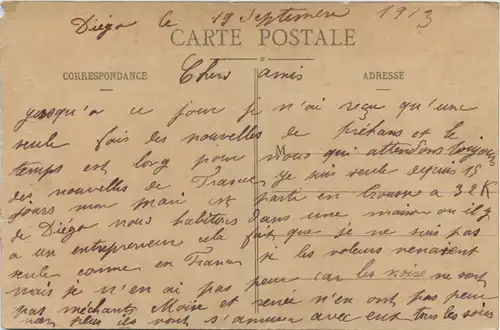 Diégo le 19 Septembre 1913
CARTE POSTALE
CORRESPONDANCE
ADRESSE
Chers amis
jusqu'a ce jour je n'ai reçu qu'une
seule fois des nouvelles de et le
M
temps est long pour nous qui attendons toujours
des nouvelles de France je suis seule depuis 15
jours mon mari est partie en brousse a 32 K
de Diégo nous habitons dans une maison ou il y
a un entrepreneur cela fait que je ne suis pas
seule comme en France si les voleurs venaient
mais je n'en ai pas peur car les noirs ne sont
pas méchants Moïse et renée n'en ont pas peur
non plus ils vont s'amuser avec eux tous les soirs